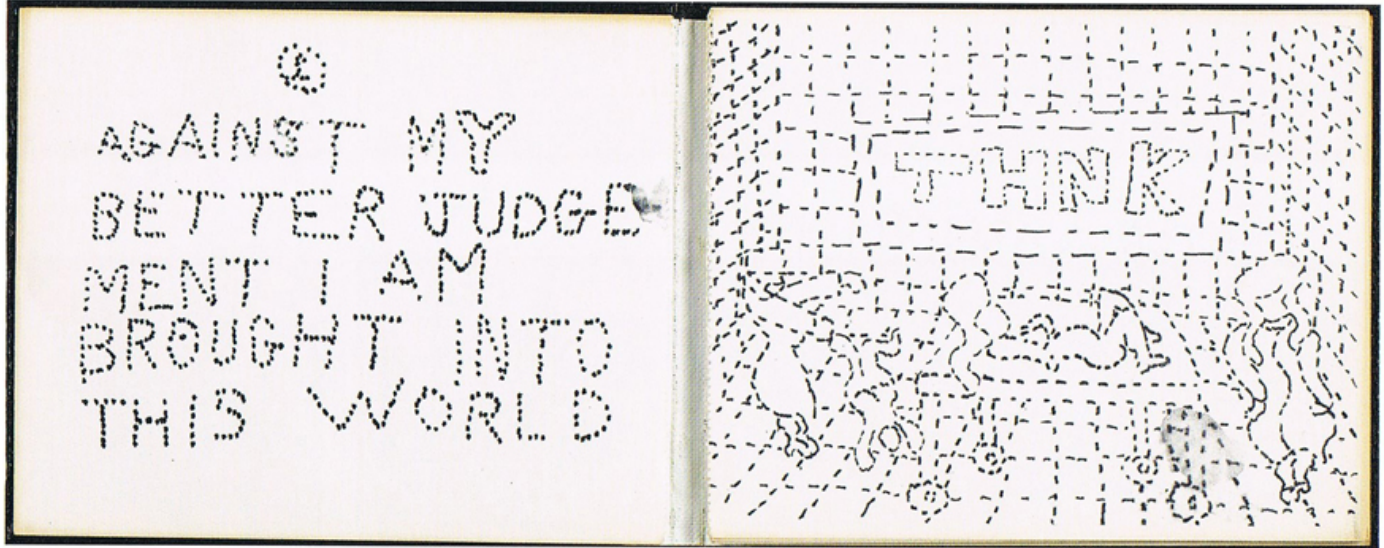 £
AGAINST MY
BETTER JUDGE
MENT I AM
BROUGHT INTO
THIS WORLD
THNK